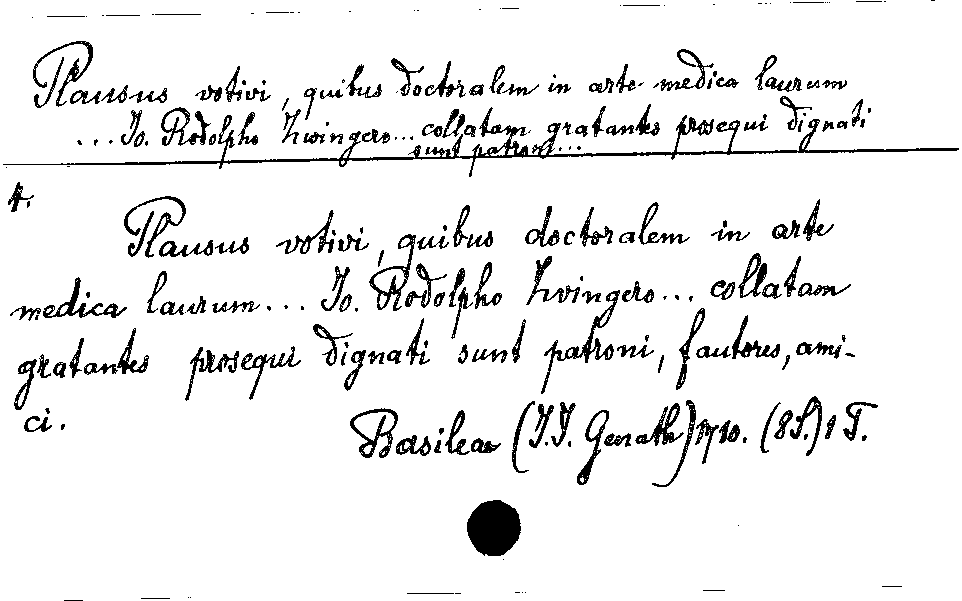 Plausus votivi, quibus doctoralem in arte medica laurum
... Io. Rodolpho Zwingero... collatam gratantes prosequi dignati
sunt patroni...
4.
Plausus votivi, quibus doctoralem in arte
medica laurum... Io. Rodolpho Zwingero... collatam
gratantes prosequi dignati sunt patroni, fautores, ami-
ci.
Basileae (J.J. Genath) 1710. (8S.) 8 T.